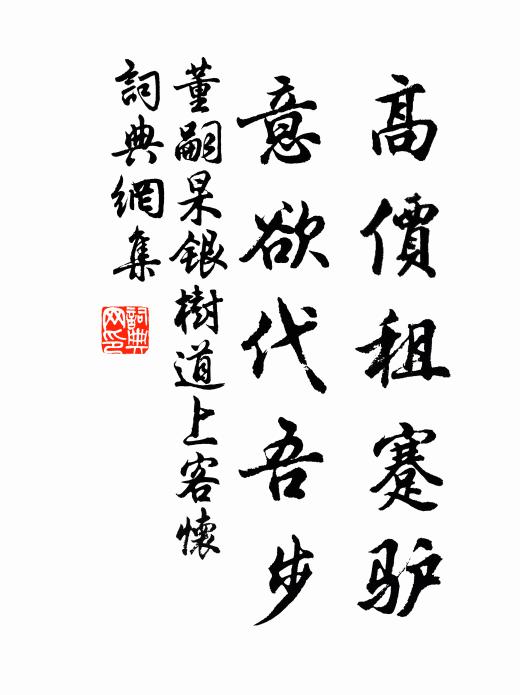 高價租蹇驴
意欲代吾步
董嗣杲銀樹道上客懷
詞典網集
詞典网印